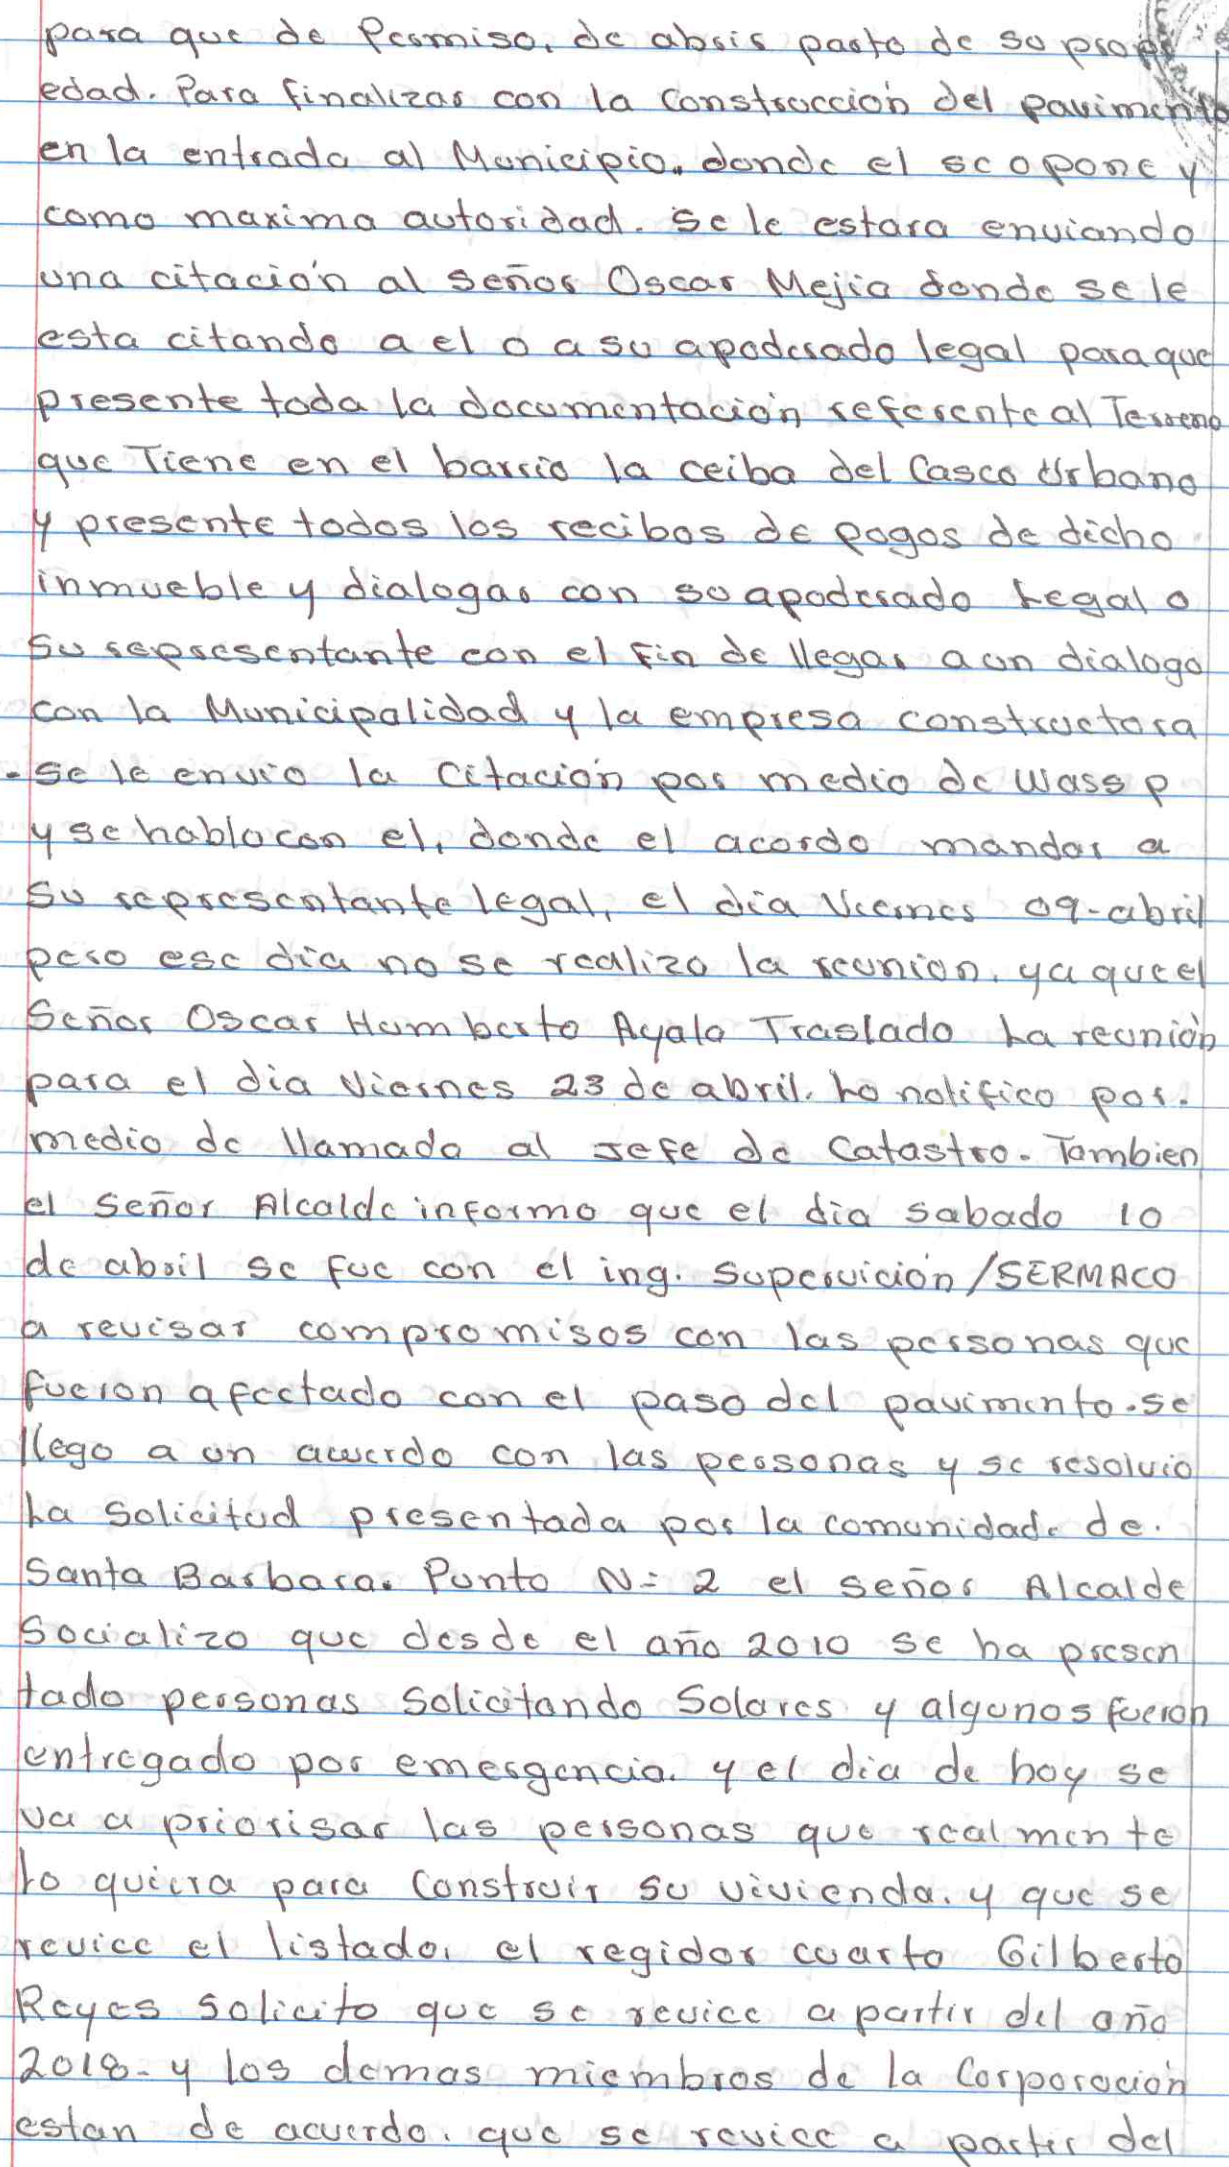 para que de Permiso, de abrir parto de su propi
edad. Para finalizar con la Construccion del pavimento
en la entrada al Municipio. donde el se opone y
como maxima autoridad. Se le estara enviando
una citación al señor Oscar Mejia donde se le
esta citando a el o a su apoderado legal para que
presente toda la documentación referente al Terreno
que Tiene en el barrio la ceiba del Casco Urbano
y presente todos los recibos de pagos de dicho
inmueble y dialogar con su apoderado Legal o
su representante con el Fin de llegar a un dialogo
con la Municipalidad y la empresa constructora
- se le envio la Citación por medio de Wass p
y se hablo con el, donde el acordo mandar a
su representante legal, el dia Viernes 09-abril
pero ese dia no se realizo la reunion. ya que el
Señor Oscar Humberto Ayala Traslado La reunión
para el dia Viernes 23 de abril. Lo notifico por.
medio de llamada al Jefe de Catastro. Tambien
el Señor Alcalde informo que el dia sabado 10
de abril se fue con el ing. Supervición/SERMACO
a revisar compromisos con las personas que
fueron afectado con el paso del pavimento. se
llego a un acuerdo con las personas y se resolvio
La Solicitud presentada por la comunidad. de.
Santa Barbara. Punto N= 2 el señor Alcalde
Socializo que desde el año 2010 se ha presen
tado personas Solicitando Solares y algunos fueron
entregado por emergencia. y el dia de hoy se
va a priorisar las personas que realmente
lo quiera para Construir su vivienda. y que se
revice el listado. el regidor cuarto Gilberto
Reyes Solicito que se revice a partir del año
2018- y los demas miembros de la Corporación
estan de acuerdo. que se revice a partir del